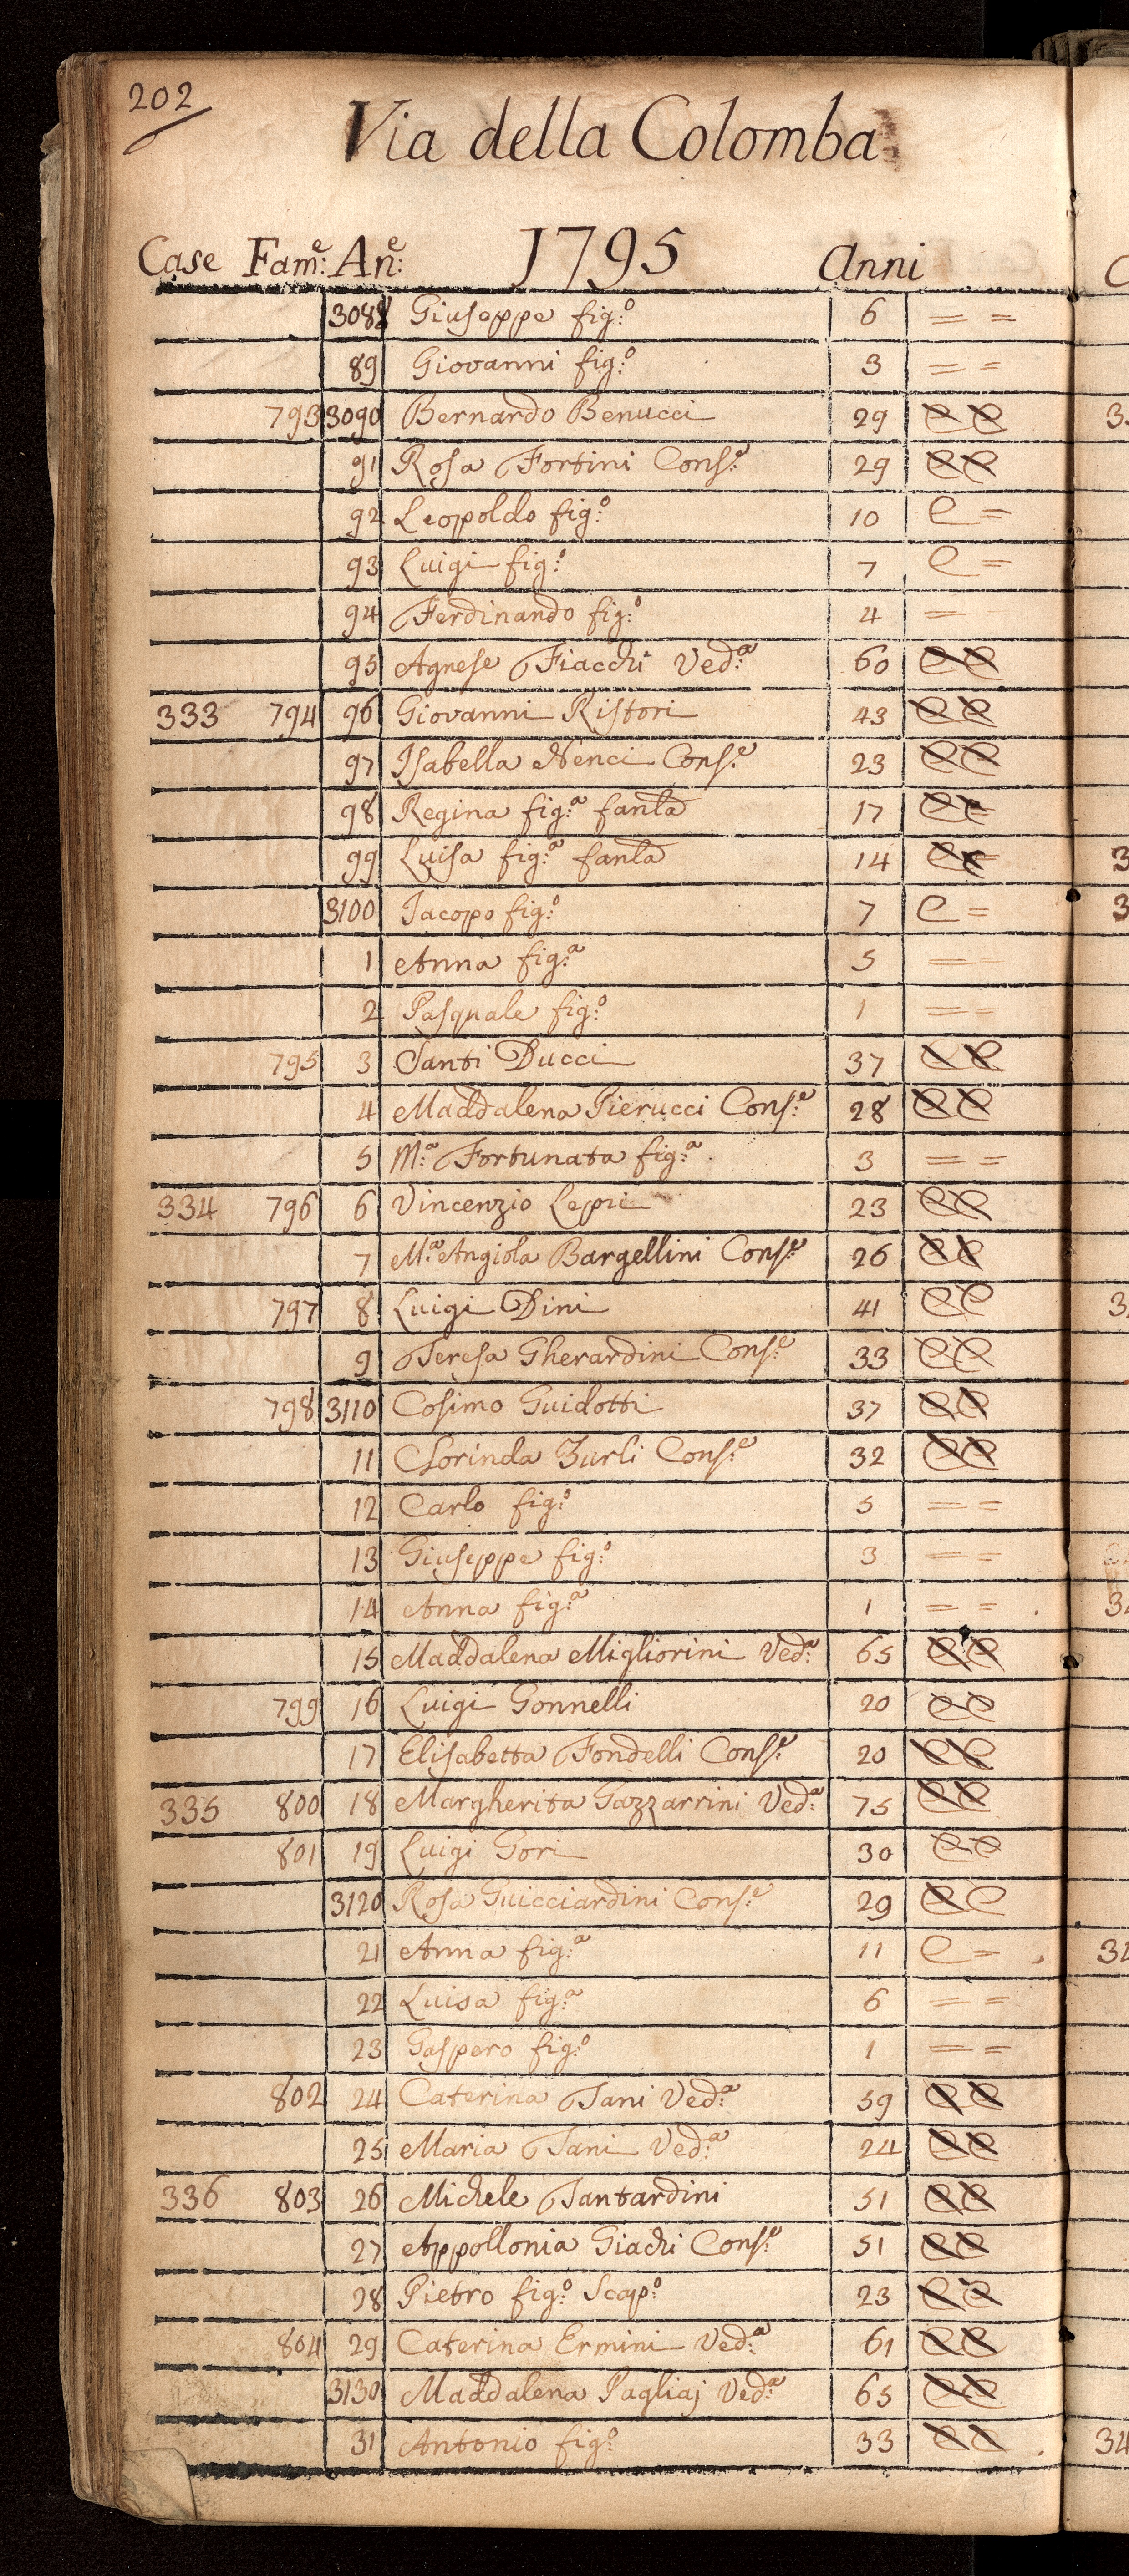 202
Via della Colomba
Case Fam:e An:e 1795 Anni
3088 Giuseppe fig:o 6 = =
89 Giovanni fig:o 3 = =
793 3090 Bernardo Benucci 29 e e
91 Rosa Fortini Cons:e 29 e e
92 Leopoldo fig:o 10 e =
93 Luigi fig:o 7 e =
94 Ferdinando fig:o 4 =
95 Agnese Fiacchi Ved:a 60 e e
333 794 96 Giovanni Ristori 43 e e
97 Isabella Nenci Cons:e 23 e e
98 Regina fig:a fanla 17 e e
99 Luisa fig:a fanla 14 e e
3100 Jacopo fig:o 7 e =
1 Anna fig:a 5 = =
2 Pasquale fig:o 1 = =
795 3 Santi Ducci 37 e e
4 Maddalena Pierucci Cons:e 28 e e
5 M:a Fortunata fig:a 3 = =
334 796 6 Vincenzio Lepri 23 e e
7 M:a Angiola Bargellini Cons:e 26 e e
797 8 Luigi Dini 41 e e
9 Teresa Gherardini Cons:e 33 e e
798 3110 Cosimo Guidotti 37 e e
11 Clorinda Zurli Cons:e 32 e e
12 Carlo fig:o 5 = =
13 Giuseppe fig:o 3 = =
14 Anna fig:a 1 = =
15 Maddalena Migliorini Ved:a 65 e e
799 16 Luigi Gonnelli 20 e e
17 Elisabetta Fondelli Cons:e 20 e e
335 800 18 Margherita Gazzarrini Ved:a 75 e e
801 19 Luigi Gori 30 e e
3120 Rosa Guicciardini Cons:e 29 e e
21 Anna fig:a 11 e =
22 Luisa fig:a 6 = =
23 Gaspero fig:o 1 = =
802 24 Caterina Tani Ved:a 59 e e
25 Maria Tani Ved:a 24 e e
336 803 26 Michele Tantardini 51 e e
27 Appollonia Giachi Cons:e 51 e e
28 Pietro fig:o Scap:o 23 e e
804 29 Caterina Ermini Ved:a 61 e e
3130 Maddalena Pagliaj Ved:a 65 e e
31 Antonio fig:o 33 e e